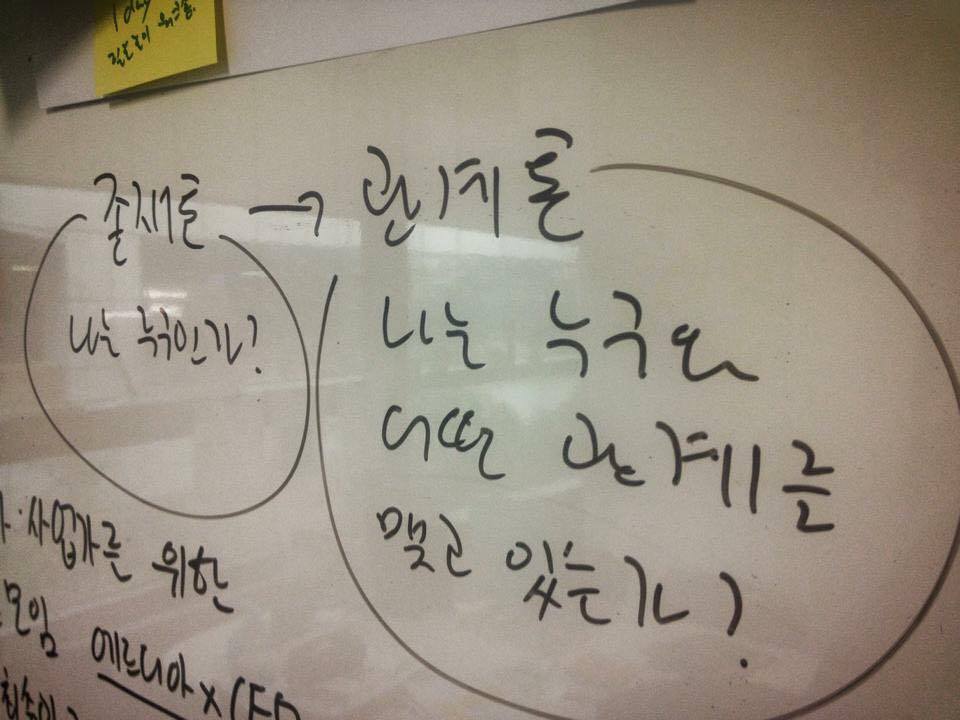 1day
존재론 → 관계론
나는 누구인가?
나는 누구와
어떤 관계를
맺고 있는가?
사업가를 위한
모임
에르디아 x CFD